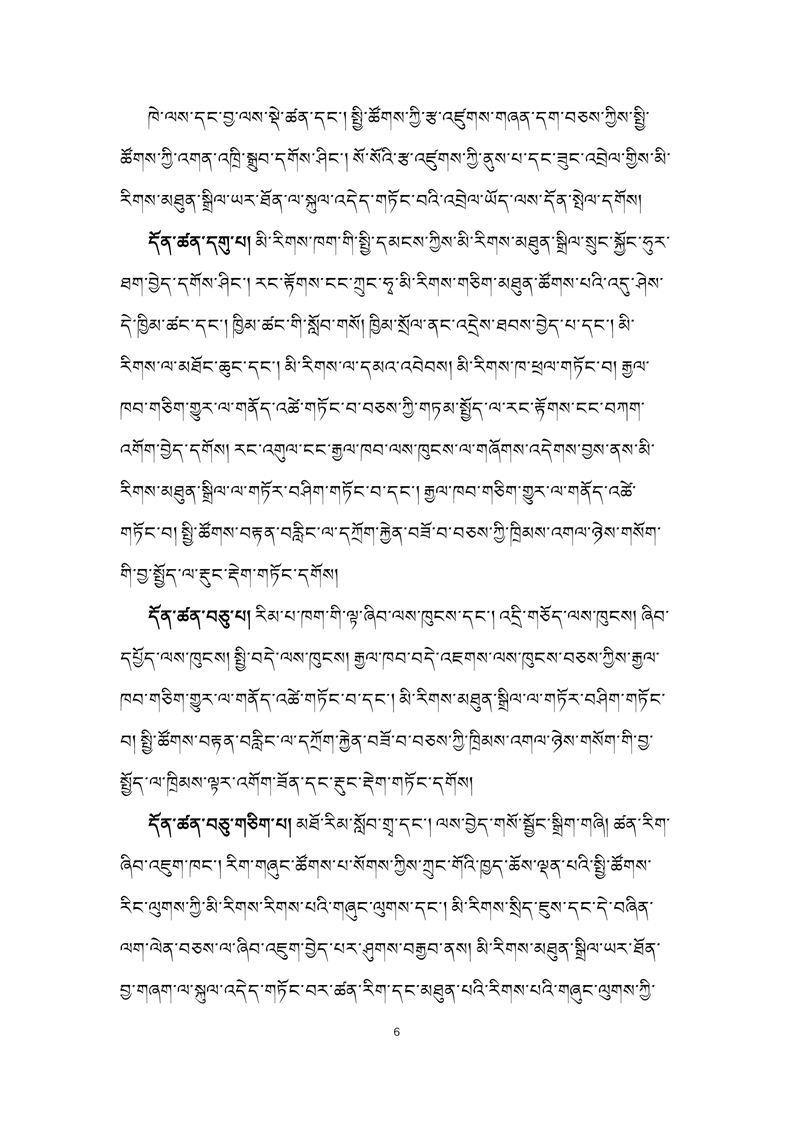 ཁེ་ལས་དང་བྱ་ལས་སྡེ་ཚན་དང་། སྤྱི་ཚོགས་ཀྱི་རྩ་འཛུགས་གཞན་དག་བཅས་ཀྱིས་སྤྱི་
ཚོགས་ཀྱི་འགན་འཁྲི་སྒྲུབ་དགོས་ཤིང་། སོ་སོའི་རྩ་འཛུགས་ཀྱི་ནུས་པ་དང་ཟུང་འབྲེལ་གྱིས་མི་
རིགས་མཐུན་སྒྲིལ་ཡར་ཐོན་ལ་སྐུལ་འདེད་གཏོང་བའི་འབྲེལ་ཡོད་ལས་དོན་སྤེལ་དགོས།
དོན་ཚན་དགུ་པ། མི་རིགས་ཁག་གི་སྤྱི་དམངས་ཀྱིས་མི་རིགས་མཐུན་སྒྲིལ་སྲུང་སྐྱོང་ཧུར་
ཐག་བྱེད་དགོས་ཤིང་། རང་རྟོགས་ངང་ཀྲུང་ཧྭ་མི་རིགས་གཅིག་མཐུན་ཚོགས་པའི་འདུ་ཤེས་
དེ་ཁྱིམ་ཚང་དང་། ཁྱིམ་ཚང་གི་སློབ་གསོ། ཁྱིམ་སྲོལ་ནང་འདྲེས་ཐབས་བྱེད་པ་དང་། མི་
རིགས་ལ་མཐོང་ཆུང་དང་། མི་རིགས་ལ་དམའ་འབེབས། མི་རིགས་ཁ་ཕྲལ་གཏོང་བ། རྒྱལ་
ཁབ་གཅིག་གྱུར་ལ་གནོད་འཚེ་གཏོང་བ་བཅས་ཀྱི་གཏམ་སྤྱོད་ལ་རང་རྟོགས་ངང་བཀག་
འགོག་བྱེད་དགོས། རང་འགུལ་ངང་རྒྱལ་ཁབ་ལས་ཁུངས་ལ་གཞོགས་འདེགས་བྱས་ནས་མི་
རིགས་མཐུན་སྒྲིལ་ལ་གཏོར་བཤིག་གཏོང་བ་དང་། རྒྱལ་ཁབ་གཅིག་གྱུར་ལ་གནོད་འཚེ་
གཏོང་བ། སྤྱི་ཚོགས་བརྟན་བརླིང་ལ་དཀྲོག་རྐྱེན་བཟོ་བ་བཅས་ཀྱི་ཁྲིམས་འགལ་ཉེས་གསོག་
གི་བྱ་སྤྱོད་ལ་རྡུང་རྡེག་གཏོང་དགོས།
དོན་ཚན་བཅུ་པ། རིམ་པ་ཁག་གི་ལྟ་ཞིབ་ལས་ཁུངས་དང་། འདྲི་གཅོད་ལས་ཁུངས། ཞིབ་
དཔྱོད་ལས་ཁུངས། སྤྱི་བདེ་ལས་ཁུངས། རྒྱལ་ཁབ་བདེ་འཇགས་ལས་ཁུངས་བཅས་ཀྱིས་རྒྱལ་
ཁབ་གཅིག་གྱུར་ལ་གནོད་འཚེ་གཏོང་བ་དང་། མི་རིགས་མཐུན་སྒྲིལ་ལ་གཏོར་བཤིག་གཏོང་
བ། སྤྱི་ཚོགས་བརྟན་བརླིང་ལ་དཀྲོག་རྐྱེན་བཟོ་བ་བཅས་ཀྱི་ཁྲིམས་འགལ་ཉེས་གསོག་གི་བྱ་
སྤྱོད་ལ་ཁྲིམས་ལྟར་འགོག་ཟོན་དང་རྡུང་རྡེག་གཏོང་དགོས།
དོན་ཚན་བཅུ་གཅིག་པ། མཐོ་རིམ་སློབ་གྲྭ་དང་། ལས་བྱེད་གསོ་སྦྱོང་སྒྲིག་གཞི། ཚན་རིག་
ཞིབ་འཇུག་ཁང་། རིག་གཞུང་ཚོགས་པ་སོགས་ཀྱིས་ཀྲུང་གོའི་ཁྱད་ཆོས་ལྡན་པའི་སྤྱི་ཚོགས་
རིང་ལུགས་ཀྱི་མི་རིགས་རིགས་པའི་གཞུང་ལུགས་དང་། མི་རིགས་སྲིད་ཇུས་དང་དེ་བཞིན་
ལག་ལེན་བཅས་ལ་ཞིབ་འཇུག་བྱེད་པར་ཤུགས་བརྒྱབ་ནས། མི་རིགས་མཐུན་སྒྲིལ་ཡར་ཐོན་
བྱ་གཞག་ལ་སྐུལ་འདེད་གཏོང་བར་ཚན་རིག་དང་མཐུན་པའི་རིགས་པའི་གཞུང་ལུགས་ཀྱི་
6